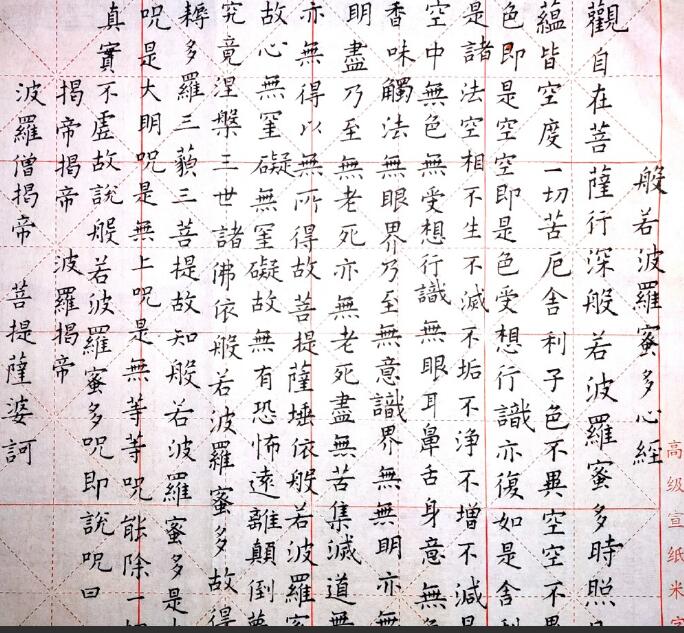 高级宣纸米字
般若波羅蜜多心經
觀自在菩薩行深般若波羅蜜多時照
蘊皆空度一切苦厄舍利子色不異空空不異
色即是空空即是色受想行識亦復如是舍利
是諸法空相不生不滅不垢不浄不增不減是
空中無色無受想行識無眼耳鼻舌身意無色
香味觸法無眼界乃至無意識界無無明亦無
明盡乃至無老死亦無老死盡無苦集滅道無
亦無得以無所得故菩提薩埵依般若波羅蜜
故心無罣礙無罣礙故無有恐怖遠離顛倒夢
究竟涅槃三世諸佛依般若波羅蜜多故得
耨多羅三藐三菩提故知般若波羅蜜多是
呪是大明呪是無上呪是無等等呪能除一切
真實不虛故說般若波羅蜜多呪即說呪曰
揭帝揭帝 波羅揭帝
波羅僧揭帝 菩提薩婆訶